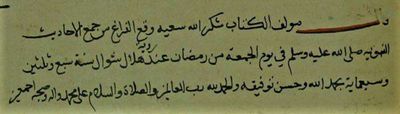 مولف الكتاب شكر الله سعيه وقع الفراغ من جمع الاحاديث
صلى الله عليه وسلم في يوم الجمعة من رمضان عند رؤية هلال شوال سنة سبع وثلثين
وسبعماية بحمد الله وحسن توفيقه والحمد لله رب العالمين والصلاة والسلام على محمد واله وصحبه اجمعين